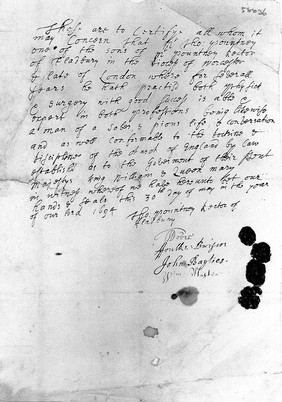 These are to Certifye all whom it
may Concern that Mr Tho: Mountney
one of the sons of Mr Mountney Rector
of Fladbury in the Diocess of worcester
& late of London where for severall
years he hath practisd both physick
& surgery with good success is able &
expert in both professions being likewise
a man of a sober & pious life & conversation
and as well conformable to the doctrine &
Discipline of the Church of England by Law
establishd as to the Goverment of their present
Majestys King William & Queen mary
in witness wherof we have hereunto set our
hands & seals this 30th day of may in the year
of our Lord 1694
Tho: Mountney Rector of
Fladbury
John Baylies